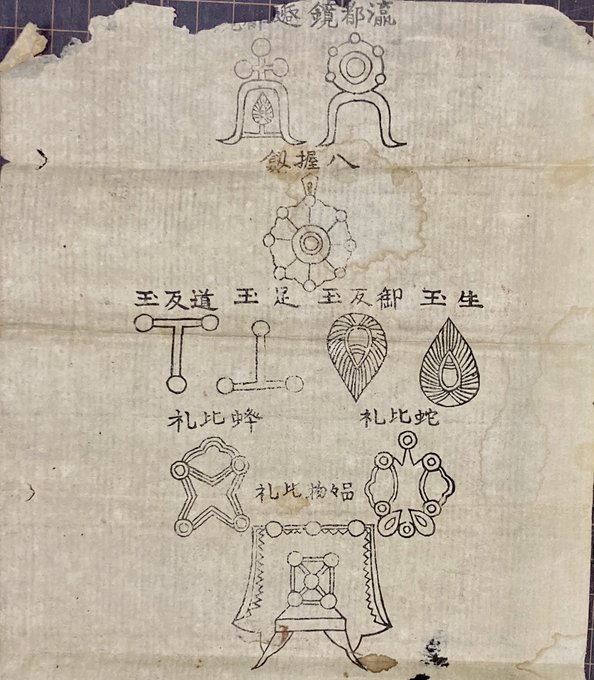 瀛都鏡
八握釼
生玉 御反玉 足玉 道反玉
蛇比礼 蜂比礼
品々物比礼